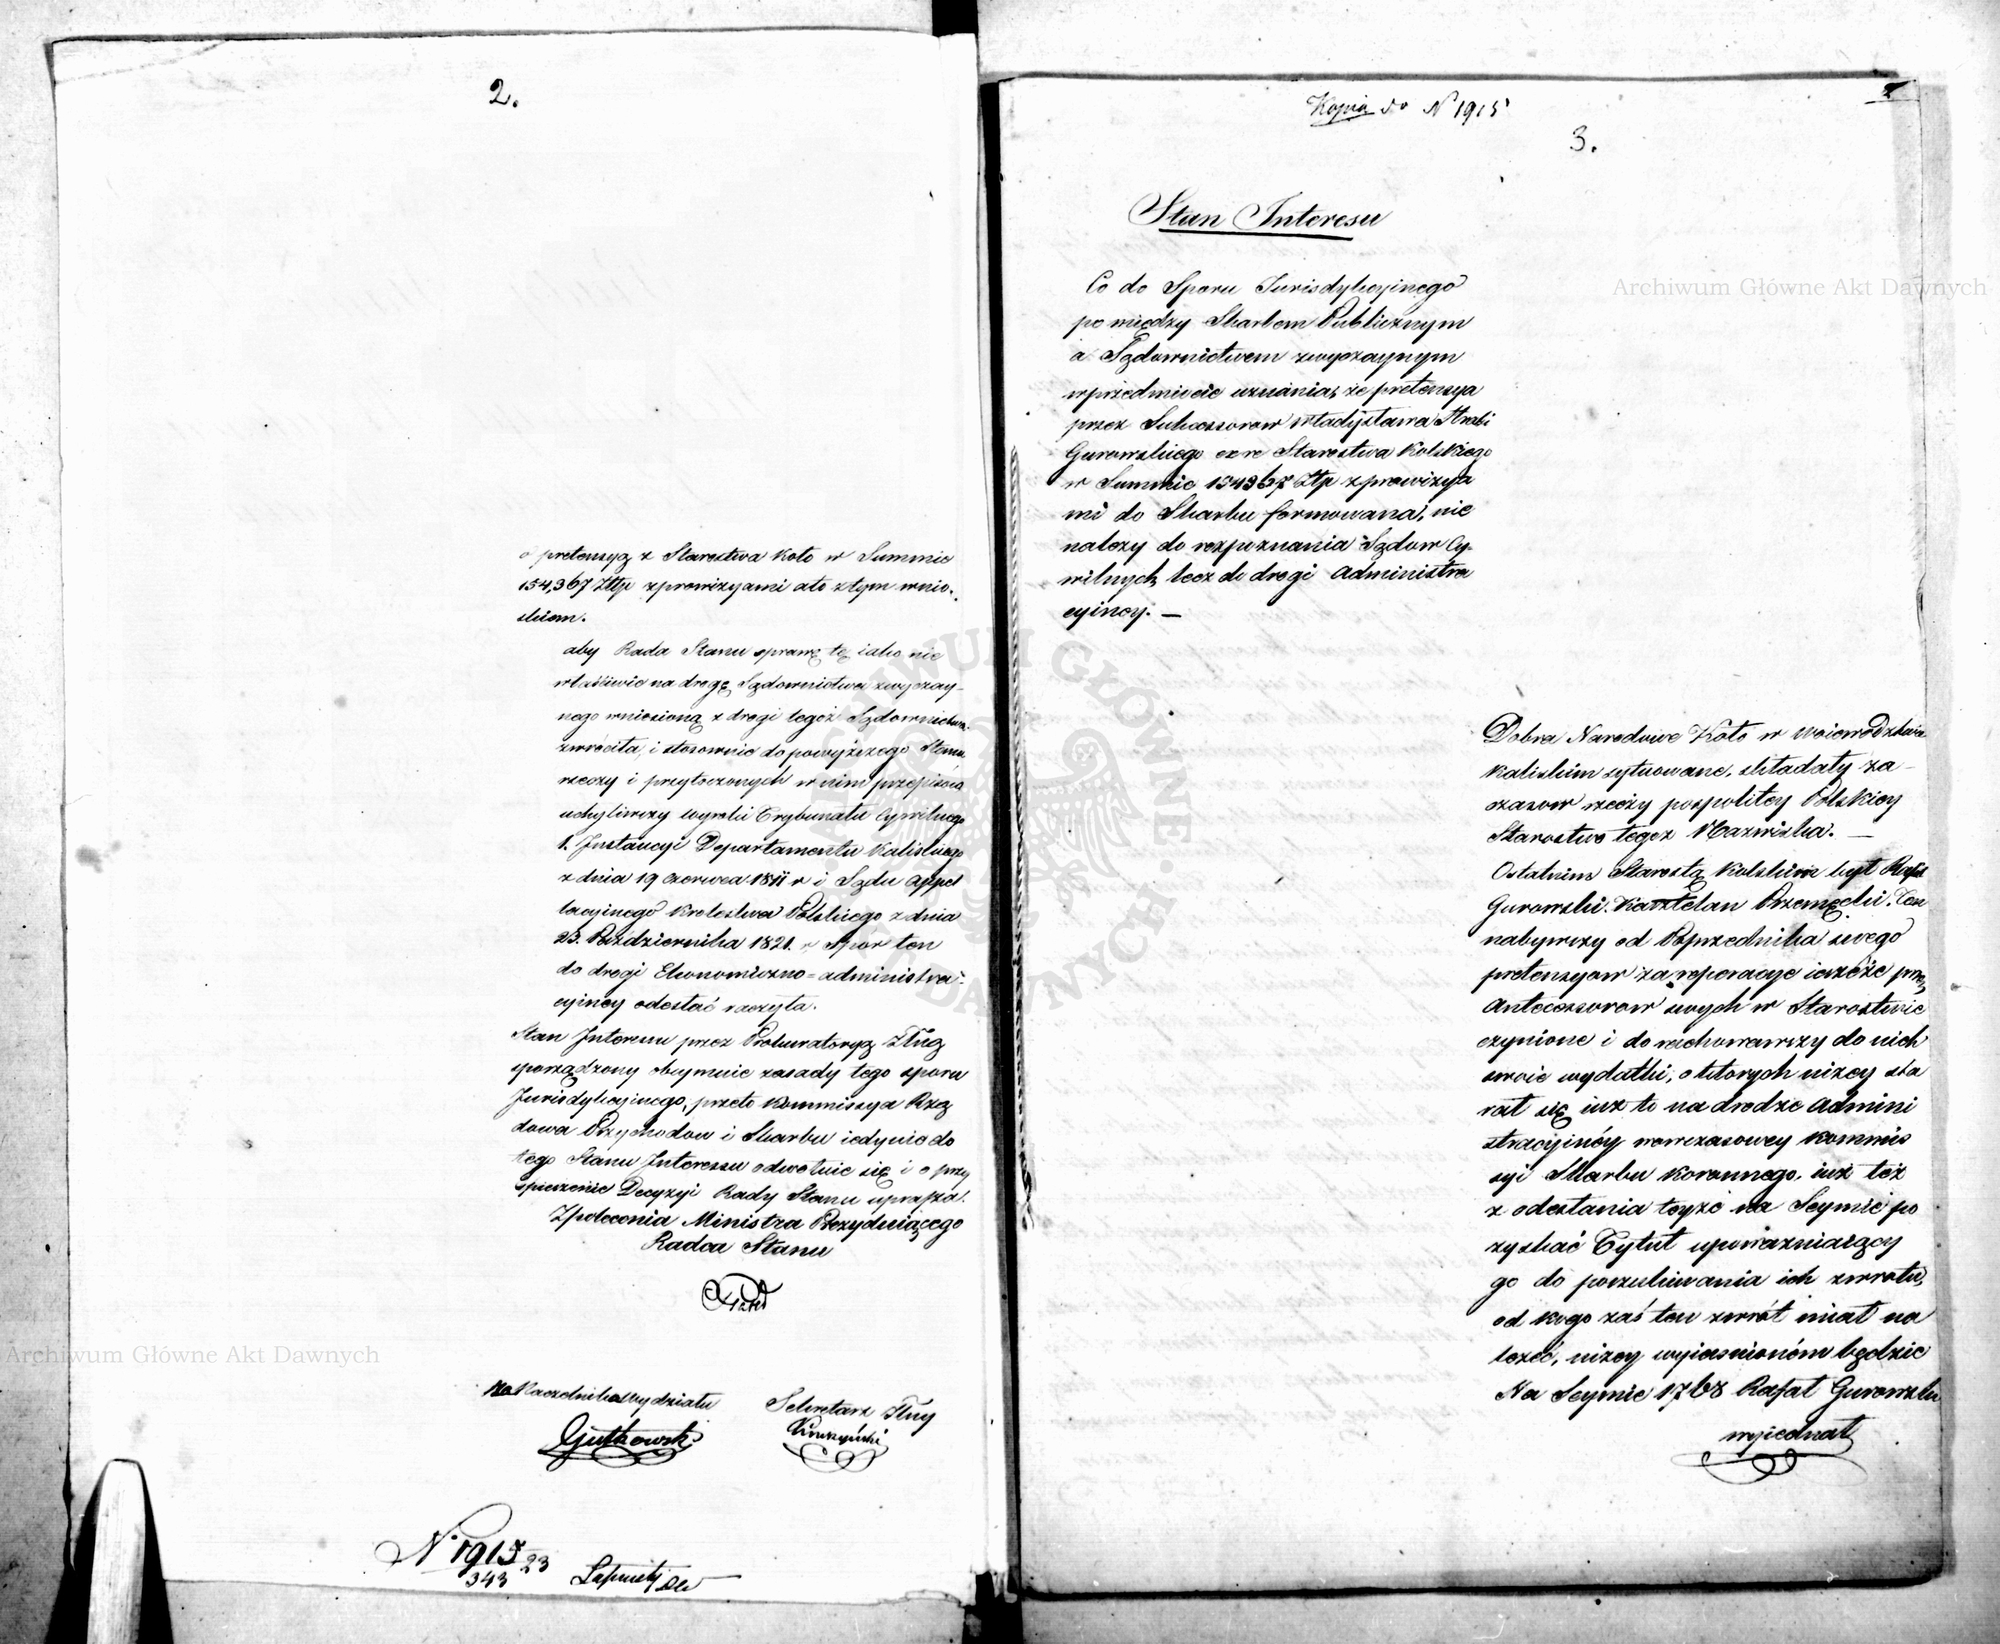 2.
o pretensyą z Starostwa Koło w Summie
154,367 Złtp z prowizyami a to z tym wnio-
skiem.
aby Rada Stanu sprawę tę iako nie
właściwie na drogę Sądownictwa zwyczay-
nego wniesioną z drogi tegoż Sądownictwa
zwróciła, i stosownie do powyższego Stanu
rzeczy i przytoczonych w nim przepisów
uchyliwszy wyroki Trybunału Cywilnego
1. Instancyi Departamentu Kaliskiego
z dnia 19 Czerwca 1811 r i Sądu Appel
lacyinego Królestwa Polskiego z dnia
23. Października 1821. r Spór ten
do drogi Ekonomiczno=administra-
cyiney odesłać raczyła.
Stan Interesu przez Prokuratoryą
sporządzony obeymuie zasady tego sporu
Jurisdykcyinego, przeto Kommissya Rzą
dowa Przychodow i Skarbu iedynie do
tego Stanu Interessu odwołuie się i o przy
spieszenie Decyzyi Rady Stanu uprasza.
Z polecenia Ministra Prezyduiącego
Radca Stanu
Naczelnika Wydziału
Gutkowski
Sekretarz
N 1915
343 23
Kopia do N 1915
3.
Stan Interesu
Co do Sporu Jurisdykcyinego
pomiędzy Skarbem Publicznym
a Sądownictwem zwyczaynym
w przedmiocie uznania, że pretensya
przez Sukcessorow Władysława Hrabi
Gurowskiego ex re Starostwa Kolskiego
w Summie 154367 Złp z prowizya
mi do Skarbu formowana, nie
należy do rozpoznania Sądow Cy-
wilnych, lecz do drogi Administra
cyiney. —
Dobra Narodowe Koło w Woiewództwie
Kaliskim sytuowane, składały za
czasow rzeczy pospolitey Polskiey
Starostwo tegoż Nazwiska. —
Ostatnim Starostą Kolskim był Rafał
Gurowski. Kasztelan Przemęcki. Ten
nabywszy od Poprzednika swego
pretensyow za reperacye ieszcze przez
Antecessorow swych w Starostwie
czynione i do rachowawszy do nich
swoie wydatki, o których niżey sta
rał się iuż to na drodze Admini
stracyinéy owczasowey Kommis
syi Skarbu Koronnego, iuż też
z odesłania teyże na Seymie po
zyskać Tytuł upoważniaiący
go do poszukiwania ich zwrotu,
od kogo zaś ten zwrót miał na
leżeć, niżey wyiasnioném będzie
Na Seymie 1768 Rafał Gurowski
wyiednał
Archiwum Główne Akt Dawnych
Archiwum Główne Akt Dawnych
ARCHIWUM GŁÓWNE AKT DAWNYCH